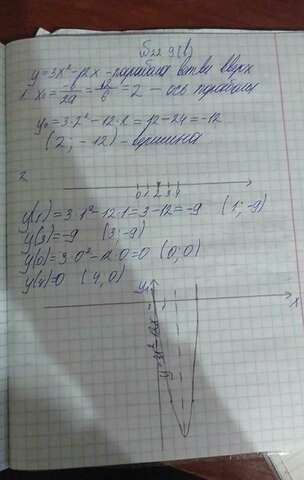 №22.9(в)
y=3x²-12x - парабола ветви вверх
1. x₀=-b/2a=12/6=2 - ось параболы
y₀=3·2²-12·2=12-24=-12
(2; -12) - вершина
2
0 1 2 3 4
y(1)=3·1²-12·1=3-12=-9 (1;-9)
y(3)=-9 (3;-9)
y(0)=3·0²-12·0=0 (0;0)
y(4)=0 (4,0)
y
x
y=3x²-12x